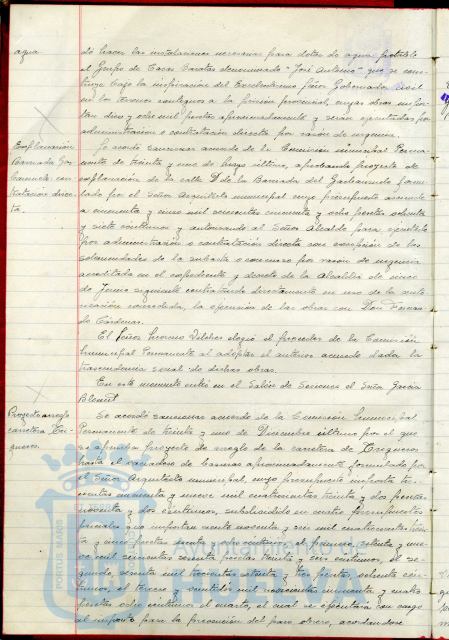 agua
do hacer las instalaciones necesarias para dotar de agua potable
al Grupo de Casas Baratas denominado "José Antonio" que se cons-
truye bajo la inspiración del Excelentísimo Señor Gobernador Civil
en los terrenos contiguos a la prisión provincial, cuyas obras impor-
tan diez y ocho mil pesetas aproximadamente y serán ejecutadas por
administración o contratación directa por razón de urgencia.
Explanación
Barriada Gar-
banzuelo. con-
tratación direc-
ta.
Se acordó sancionar acuerdo de la Comisión municipal Perma-
nente de treinta y uno de Mayo último, aprobando proyecto de
explanación de la calle D de la Barriada del Garbanzuelo formu-
lado por el Señor Arquitecto municipal cuyo presupuesto asciende
a cincuenta y cinco mil seiscientas cincuenta y ocho pesetas ochenta
y siete céntimos y autorizando al Señor Alcalde para ejecutarlo
por administración o contratación directa con excepción de las
solemnidades de la subasta o concurso por razón de urgencia
acreditada en el expediente y decreto de la Alcaldía de cinco
de Junio siguiente contratando directamente en uso de la auto-
rización concedida, la ejecución de las obras con Don Fernan-
do Cárdenas.
El Señor Vilches elogió el proceder de la Comisión
Municipal Permanente al adoptar el anterior acuerdo dada la
trascendencia social de dichas obras.
En este momento entró en el Salón de Sesiones el Señor García
Proyecto arreglo
carretera Tri-
gueros.
Se acordó sancionar acuerdo de la Comisión Municipal
Permanente de treinta y uno de Diciembre último por el que
se aprueba proyecto de arreglo de la carretera de Trigueros
hasta el vaciadero de basuras aproximadamente formulado por
el Señor Arquitecto municipal, cuyo presupuesto importa tres-
cientas cincuenta y nueve mil cuatrocientas treinta y dos pesetas
noventa y dos céntimos, subdividido en cuatro presupuestos
parciales que importan ciento noventa y seis mil cuatrocientas
y cinco pesetas ochenta y ocho céntimos, el primero, setenta y nue-
ve mil seiscientas sesenta pesetas treinta y seis céntimos, el se-
gundo, sesenta mil trescientas setenta y tres pesetas, céntimos
el tercero y veintidós mil novecientas cincuenta y cuatro
pesetas ocho céntimos el cuarto, el cual se ejecutará con cargo
al importe para la prevención del paro obrero, acordándose